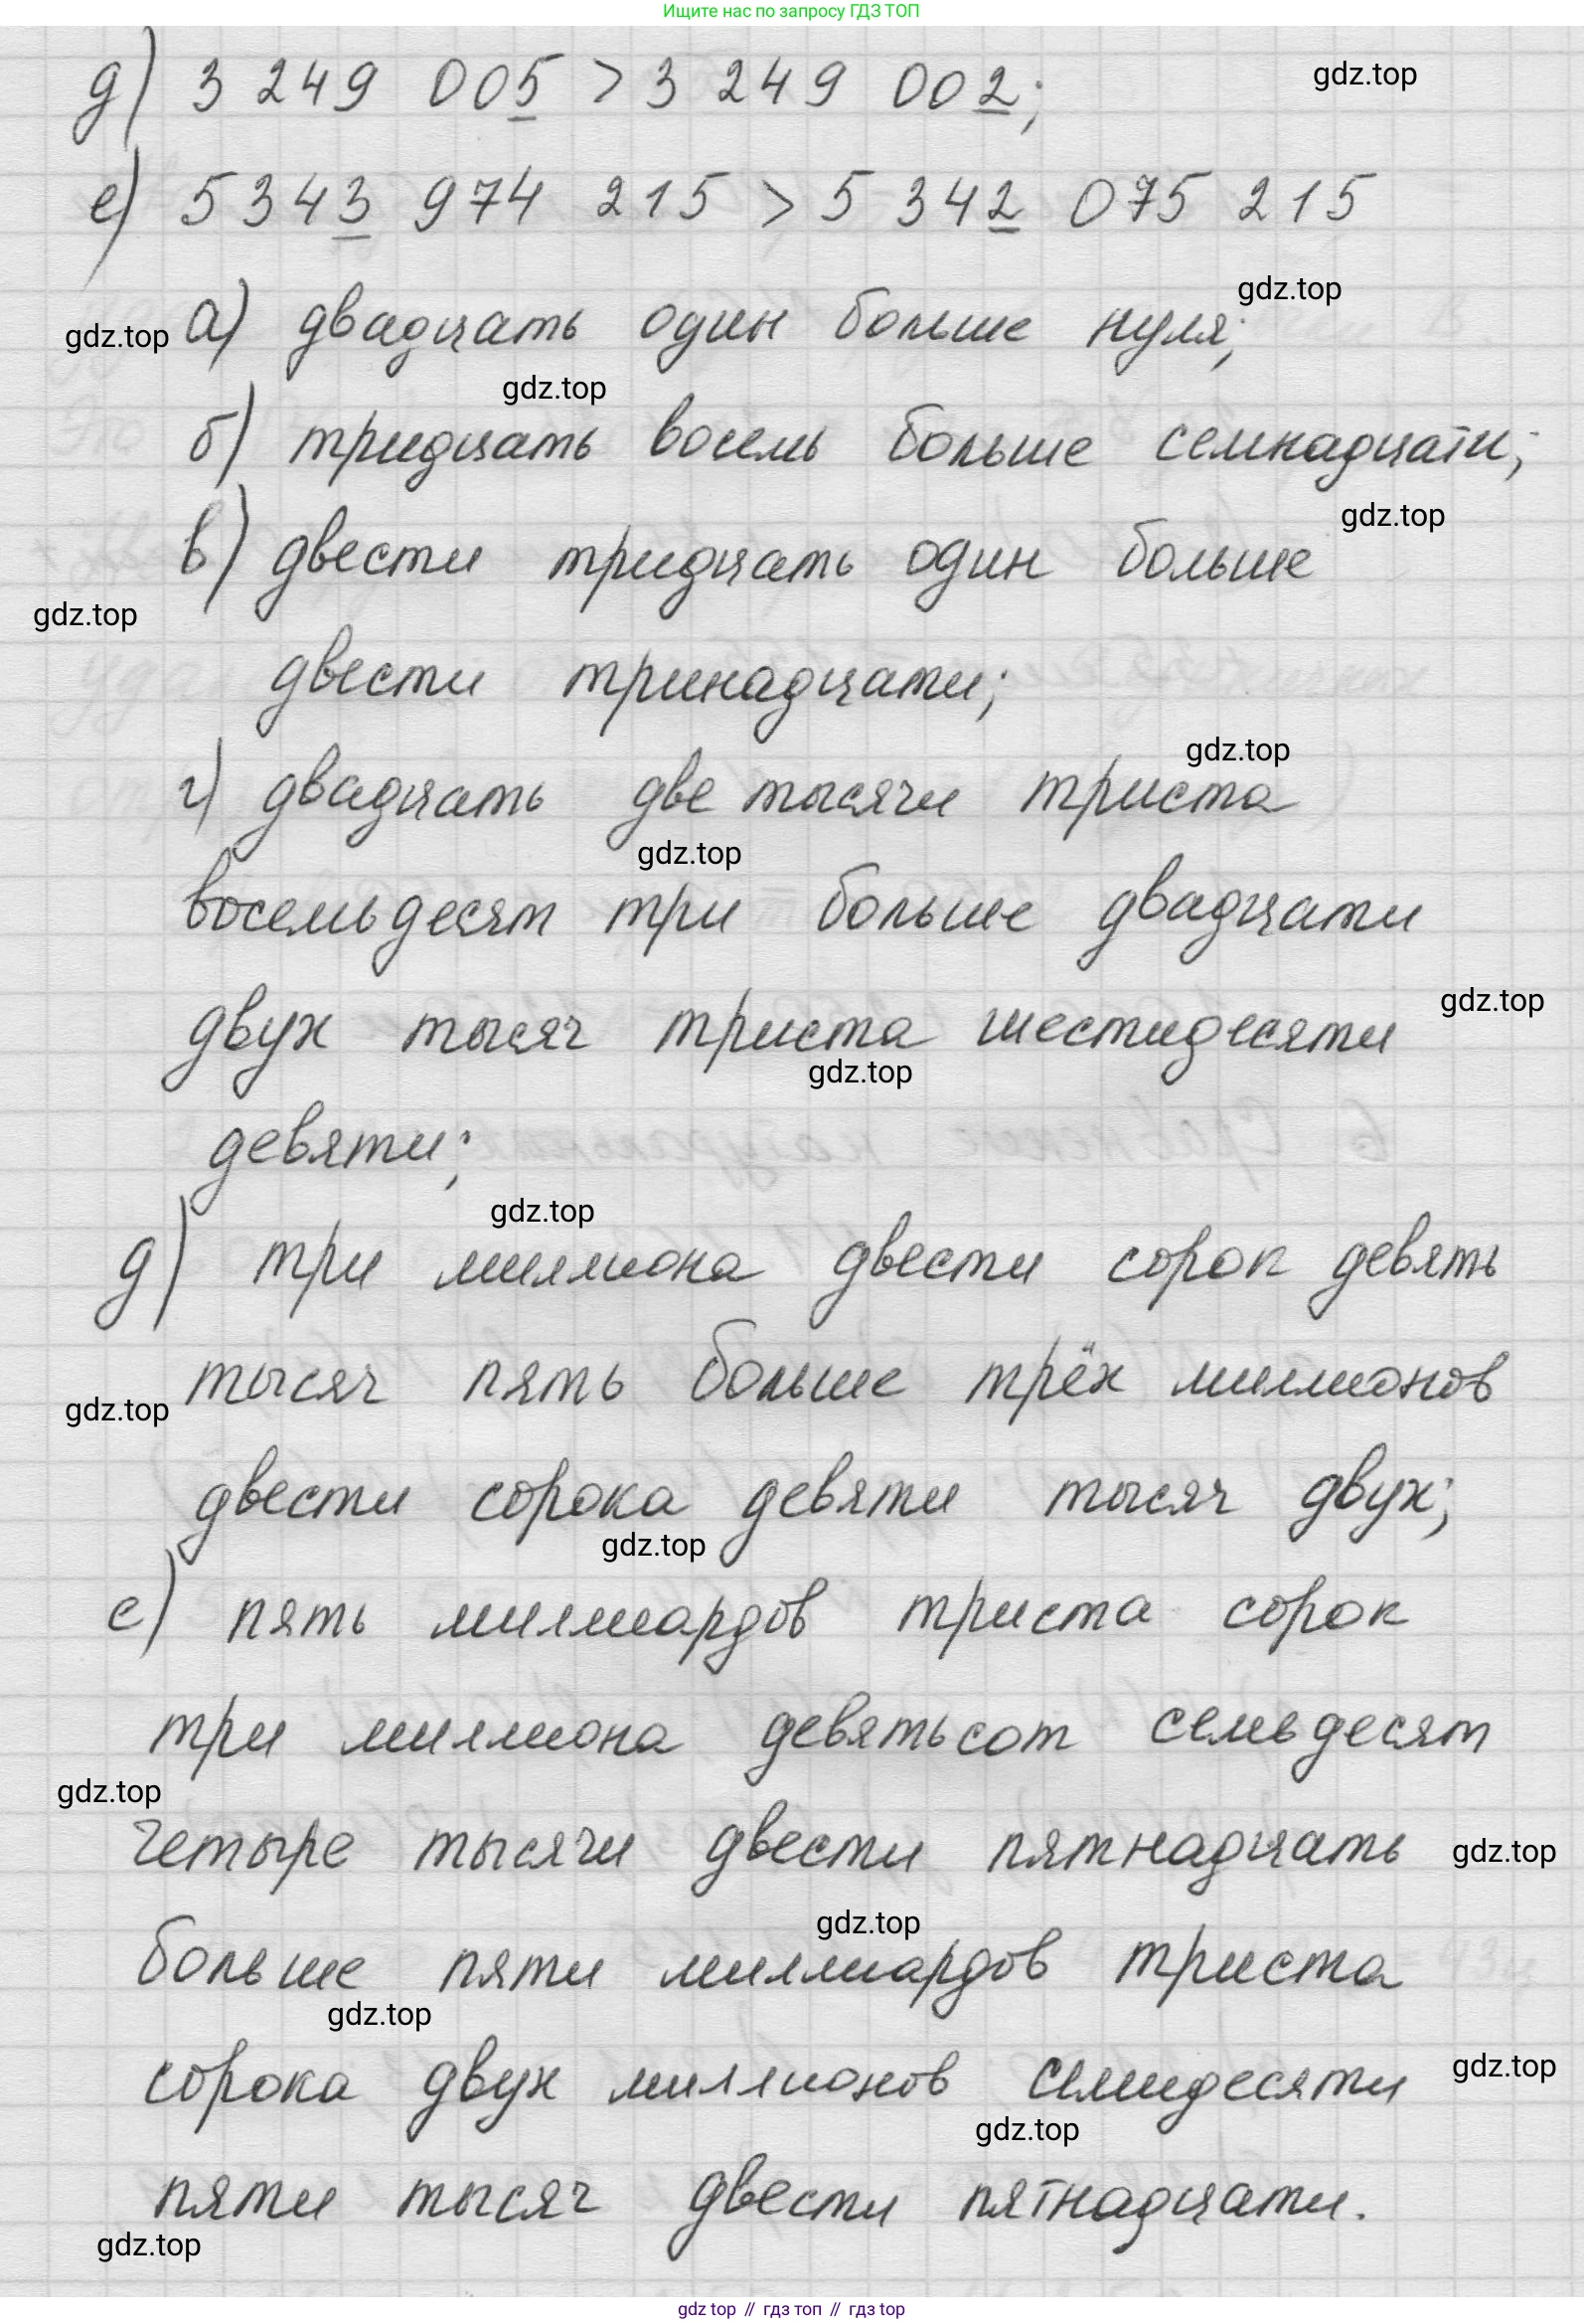 Ищите нас по запросу ГДЗ ТОП
д) 3 249 005 > 3 249 002;
gdz.top
е) 5 343 974 215 > 5 342 075 215
gdz.top
gdz.top
а) двадцать один больше нуля;
gdz.top
б) тридцать восемь больше семнадцати;
gdz.top
в) двести тридцать один больше
gdz.top
двести тринадцати;
gdz.top
г) двадцать две тысячи триста
gdz.top
восемьдесят три больше двадцати
gdz.top
двух тысяч триста шестидесяти
gdz.top
девяти;
gdz.top
д) три миллиона двести сорок девять
тысяч пять больше трёх миллионов
gdz.top
двести сорока девяти тысяч двух;
gdz.top
е) пять миллиардов триста сорок
три миллиона девятьсот семьдесят
gdz.top
четыре тысячи двести пятнадцать
gdz.top
gdz.top
больше пяти миллиардов триста
gdz.top
сорока двух миллионов семидесяти
gdz.top
gdz.top
пяти тысяч двести пятнадцати.
gdz.top
gdz top // гдз топ // gdz top